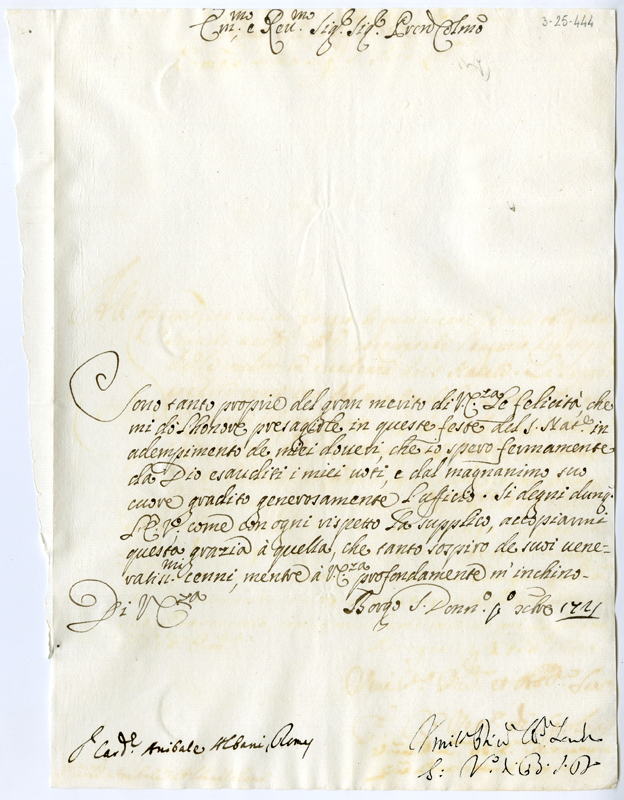 Em.mo e Rev.mo Sig.r Sig.r P.rone Col.mo
3-25-444
Sono tanto proprie del gran merito di V.Em.za le felicità, che
mi dò l'honore presagirle in queste feste del S. Nat.e in
adempimento de miei doveri, che io spero fermamente
da Dio esauditi i miei voti, e dal magnanimo suo
cuore gradito generosamente l'uffitio. Si degni dunq.
l'E.V., come con ogni rispetto La supplico, accopiarmi
questa grazia à quella, che tanto sospiro de suoi vene-
ratis.mi cenni, mentre à V.Em.za profondamente m'inchino.
Di V.Em.za
Borgo S. Donn.o p.o Xbre 1721
S.r Card.le Anibale Albani, Roma